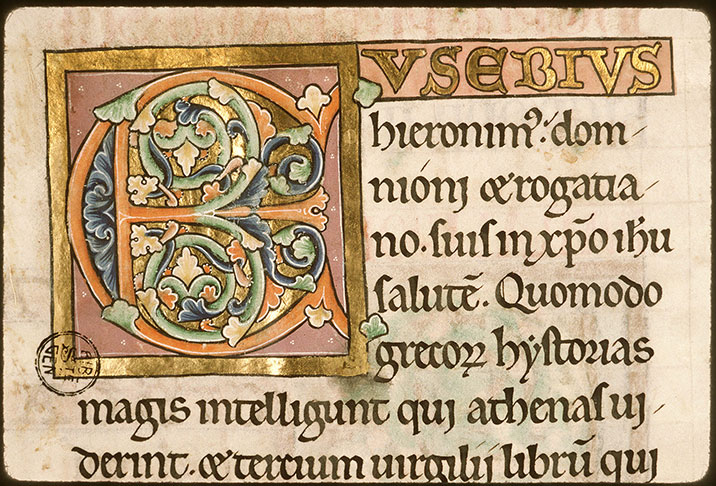 EUSEBIUS
hieronim⁹. dom-
nioni & rogatia-
no. suis in xp̄o ih̄u
salutē. Quomodo
grecoꝝ hystorias
magis intelligunt qui athenas ui-
derint. & tercium uirgilij librū qui